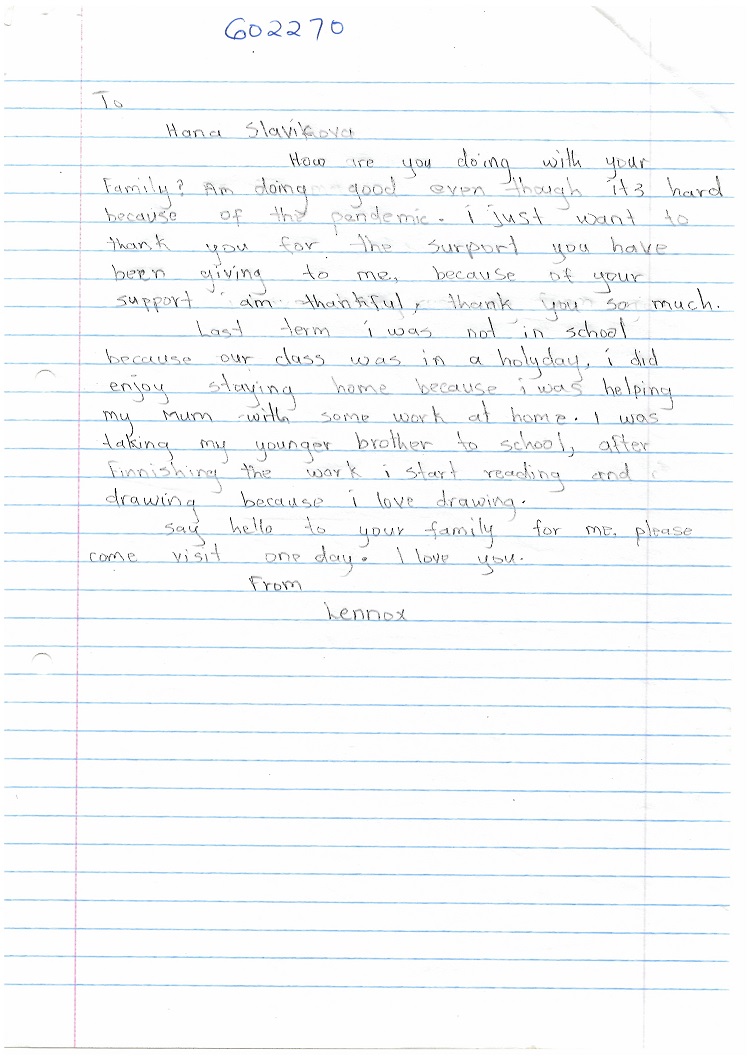 602270
To
Hana Slavikova
How are you doing with your
Family? Am doing good even though its hard
because of the pandemic. i just want to
thank you for the surport you have
been giving to me, because of your
support am thankful, thank you so much.
Last term i was not in school
because our class was in a holyday, i did
enjoy staying home because i was helping
my Mum with some work at home. I was
taking my younger brother to school, after
Finnishing the work i start reading and
drawing because i love drawing.
say hello to your family for me. please
come visit one day. I love you.
From
Lennox